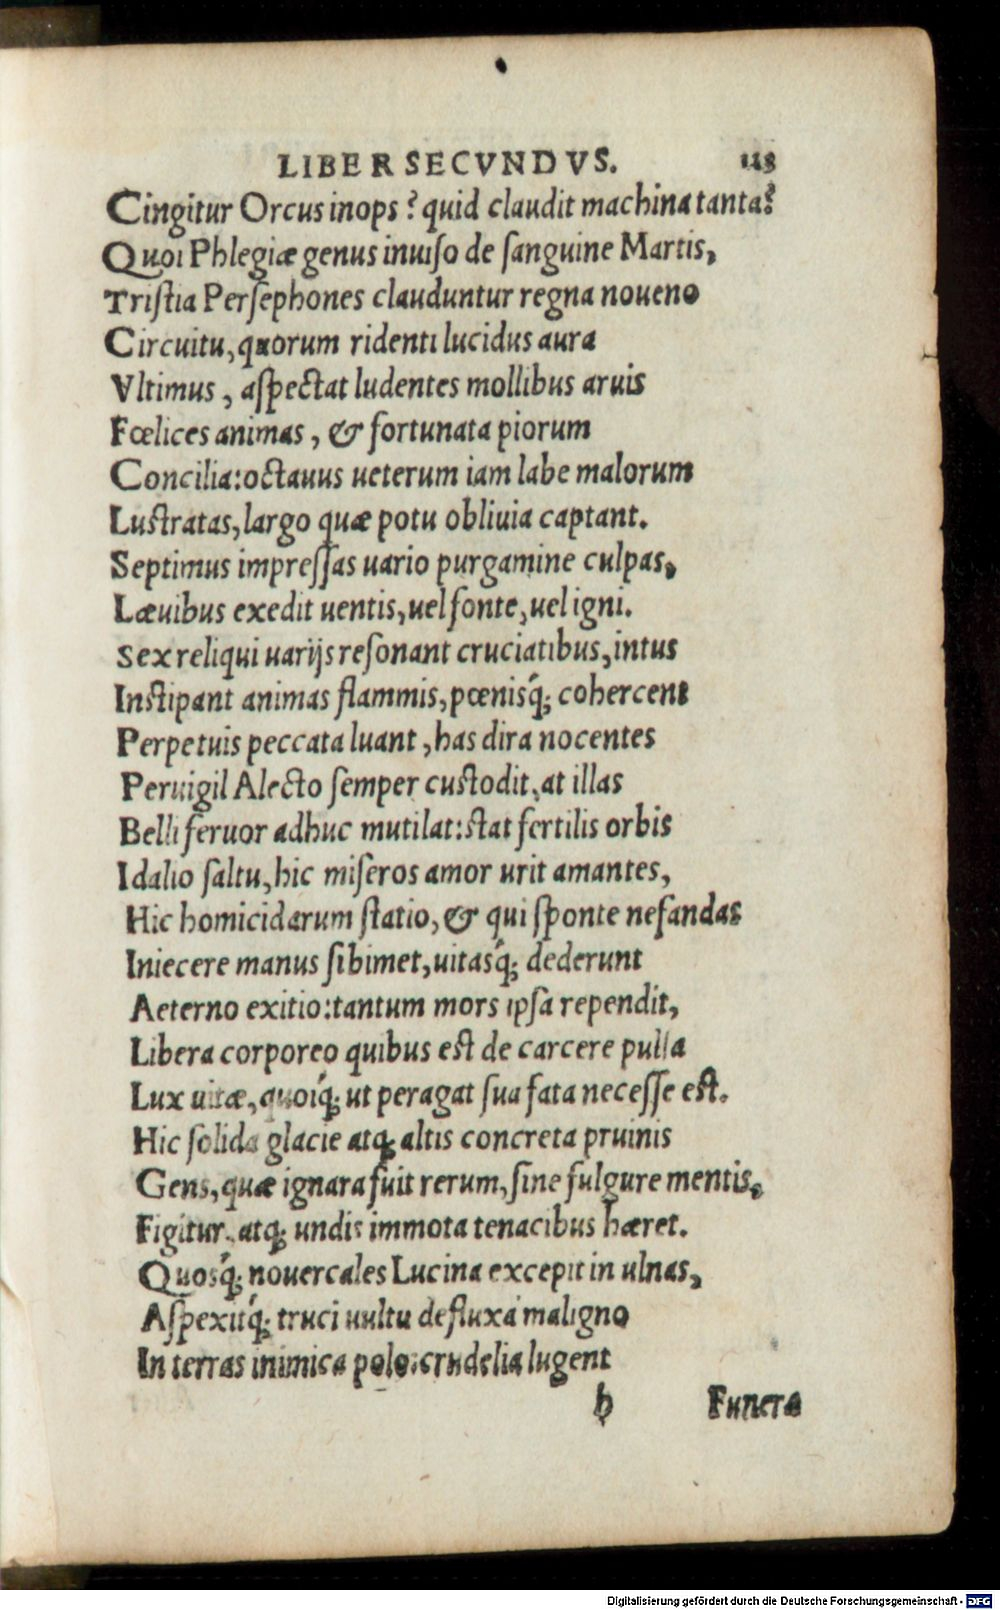 LIBER SECVNDVS. 113
Cingitur Orcus inops? quid claudit machina tanta?
Quoi Phlegiæ genus inuiſo de ſanguine Martis,
Triſtia Perſephones clauduntur regna noueno
Circuitu, quorum ridenti lucidus aura
Vltimus, aſpectat ludentes mollibus aruis
Fœlices animas, & fortunata piorum
Concilia: octauus ueterum iam labe malorum
Luſtratas, largo quæ potu obliuia captant.
Septimus impreſſas uario purgamine culpas,
Læuibus exedit uentis, uel fonte, uel igni.
Sex reliqui uarijs reſonant cruciatibus, intus
Inſtipant animas flammis, pœnisq́; cohercent
Perpetuis peccata luant, has dira nocentes
Peruigil Alecto ſemper cuſtodit, at illas
Belli feruor adhuc mutilat: ſtat fertilis orbis
Idalio ſaltu, hic miſeros amor urit amantes,
Hic homicidarum ſtatio, & qui ſponte nefandas
Iniecere manus ſibimet, uitasq́; dederunt
Aeterno exitio: tantum mors ipſa rependit,
Libera corporeo quibus eſt de carcere pulſa
Lux uitæ, quoiq́; ut peragat ſua fata neceſſe eſt.
Hic ſolida glacie atq; altis concreta pruinis
Gens, quæ ignara fuit rerum, ſine fulgure mentis,
Figitur, atq; undis immota tenacibus hæret.
Quosq́; nouercales Lucina excepit in ulnas,
Aſpexitq́; truci uultu defluxa maligno
In terras inimica polo: crudelia lugent
h Funera
Digitalisierung gefördert durch die Deutsche Forschungsgemeinschaft - DFG